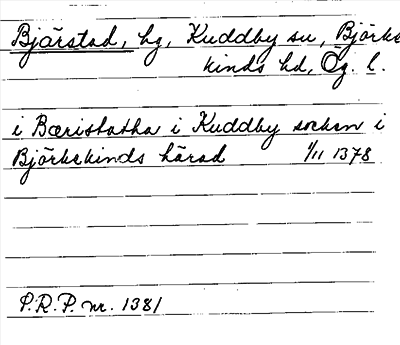 Bjärstad, hg, Kuddby sn, Björke
kinds hd, Ög. l.
i Bæristatha i Kuddby socken i
Björkekinds härad 1/11 1378
P.R.P. nr. 1381